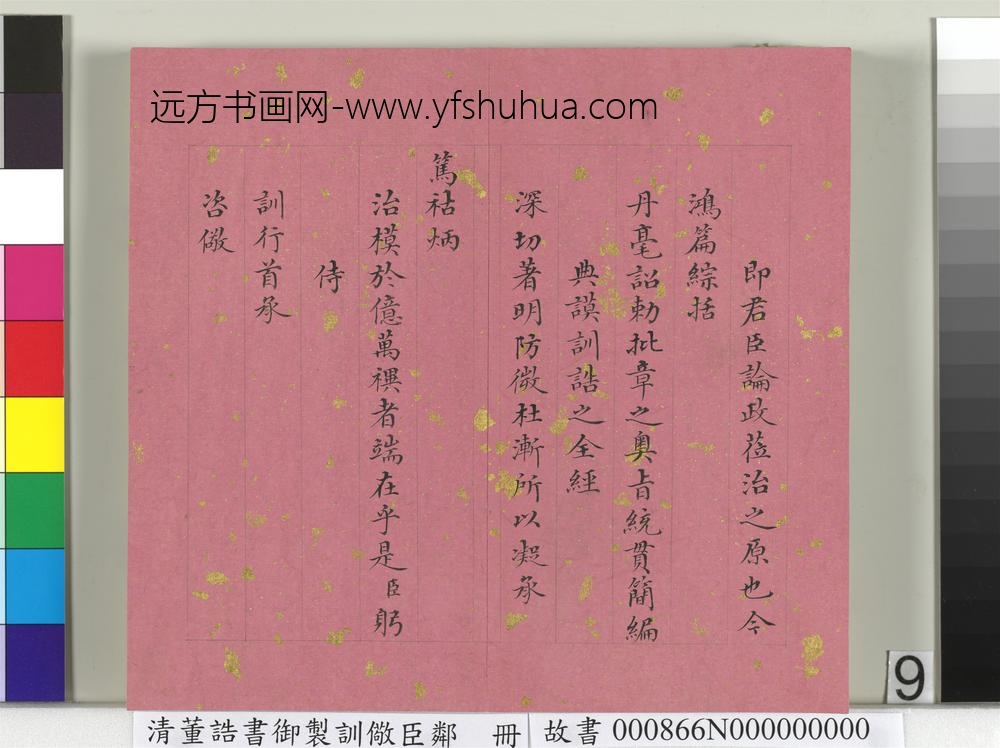 远方书画网-www.yfshuhua.com
即君臣論政莅治之原也今
鴻篇綜括
丹毫詔勅批章之奧旨統貫簡編
典謨訓誥之全經
深切著明防微杜漸所以凝承
篤祜炳
治模於億萬禩者端在乎是臣躬
侍
訓行首承
咨儆
9
清董誥書御製訓儆臣鄰 冊
故書 000866N000000000